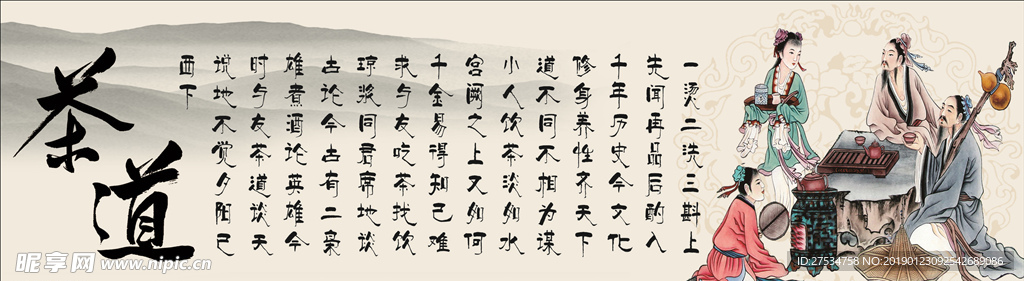 一烫二洗三斟上
先闻再品后酌入
千年历史今文化
修身养性齐天下
道不同不相为谋
小人饮茶淡如水
宫阙之上又如何
千金易得知己难
求与友吃茶找饮
琼浆同君席地谈
古论今古有二枭
雄煮酒论英雄今
时与友茶道谈天
说地不觉夕阳已
西下
茶道
昵享网 www.nipic.cn
ID:27534758 NO:20190123092542689086